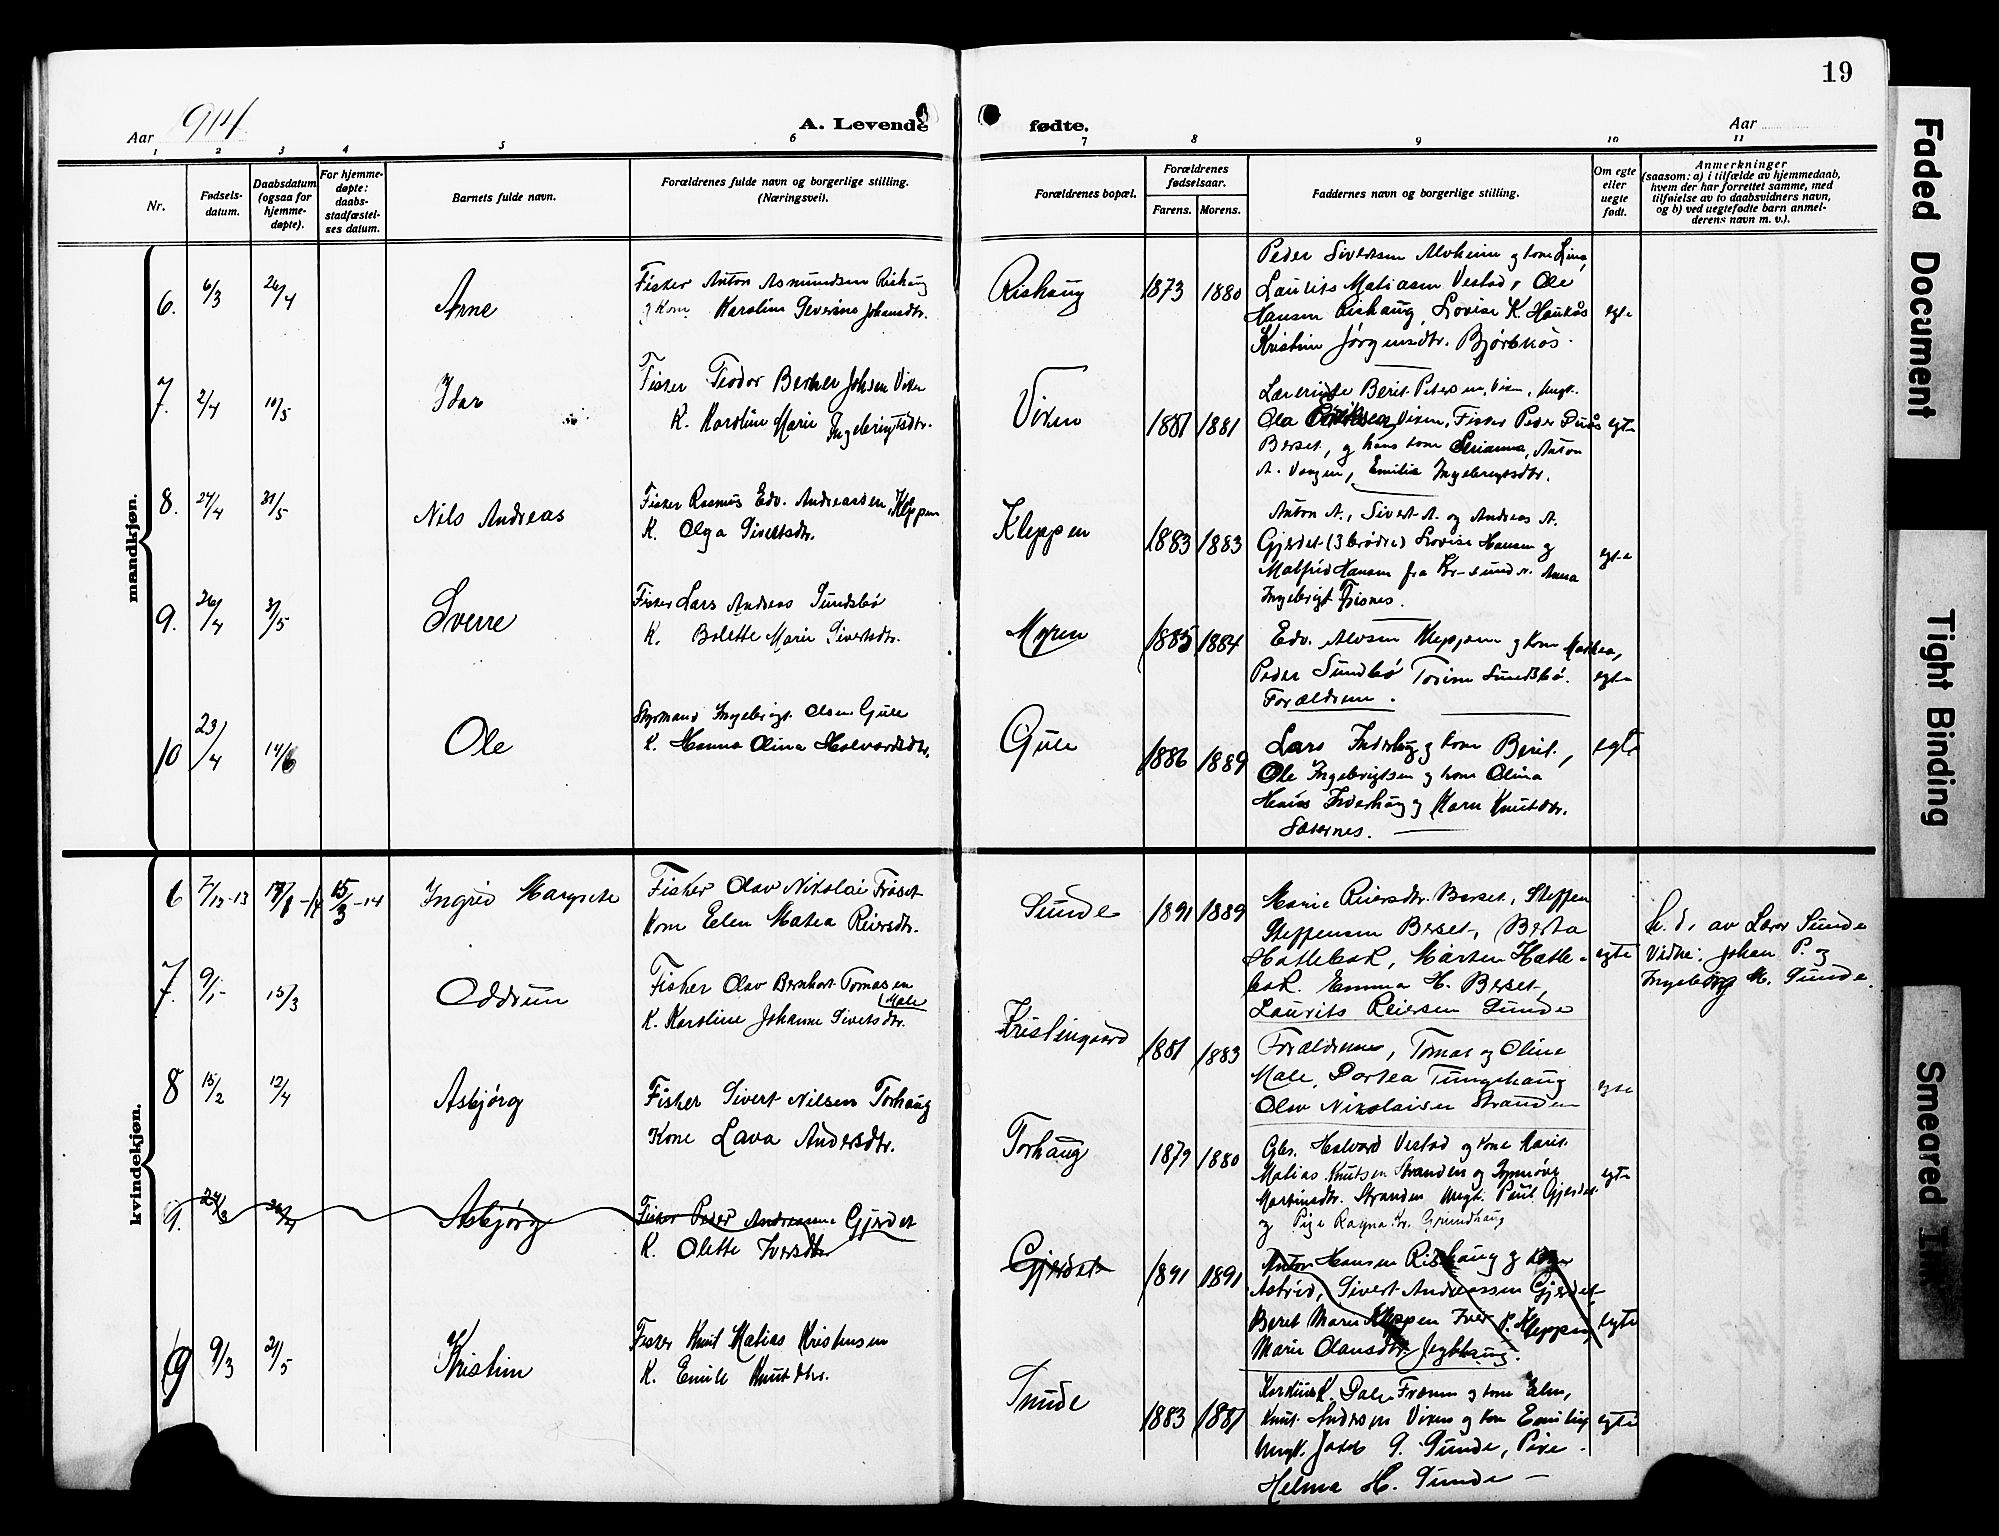 19
Aar 1914
A. Levende fødte.
Aar
1 2 3 4 5 6 7 8 9 10 11
Nr.
Fødsels-
datum.
Daabsdatum
(ogsaa for
hjemme-
døpte).
For hjemme-
døpte:
daabs-
stadfæstel-
ses datum.
Barnets fulde navn.
Forældrenes fulde navn og borgerlige stilling.
(Næringsvei).
Forældrenes bopæl.
Forældrenes
fødselsaar.
Farens. Morens.
Faddernes navn og borgerlige stilling.
Om egte
eller
uegte
født.
Anmerkninger
(saasom: a) i tilfælde av hjemmedaab,
hvem der har forrettet samme, med
tilføielse av to daabsvidners navn,
og b) ved uegtefødte barn anmel-
derens navn m. v.).
mandkjøn.
6. 6/3 26/4 Arne
Fisker Anton Asmundsen Rishaug
og Kone Karoline Severine Johansdtr.
Rishaug 1873 1880
Peder Sivertsen Alvheim og kone Lina,
Laurits Matiasen Vestad, Ole
Hansen Rishaug, Lovise K. Haukås
Kristine Jørgensdtr. Bjørnnos.
egte
7. 2/4 10/5 Idar
Fisker Teodor Berner Johsen Viken
K. Karoline Marie Ingebrigtsdtr.
Viken 1881 1881
Lærerinde Berit Petersen, Viken, Ungk.
Ola Eriksen Viken, Fisker Peder
Berset, og hans kone Anton
A. Vaagen, Emilie Ingebrigtsdtr.
egte
8. 27/4 31/5 Nils Andreas
Fisker Rasmus Edv. Andreassen, Kleppen
K. Olga Sivertsdtr.
Kleppen 1883 1883
Anton A., Sivert A. og Andreas A.
Gjerdet (3 brødre) Lovise Hansen og
Malfrid Hansen fra Kr-sund N. Anna
Ingebrigt
egte
9. 26/4 31/5 Sverre
Fisker Lars Andreas Sundsbø
K. Bolette Marie Sivertsdtr.
Myren 1885 1884
Edv. Alvsen Kleppen og kone Mathea,
Peder Sundsbø Torine Sundsbø.
Forældrene.
egte
10 23/4 14/6 Ole
Styrmand Ingebrigt Olsen Gule
K. Hanna Olina Halvardsdtr.
Gule 1886 1889
Lars Inderhaug og kone Berit,
Ole Ingebrigtsen og kone Olina
Hans Inderhaug og Karn Knutsdtr.
Sæternes.
egte
kvindekjøn.
6 7/12-13 18/1-14 15/3-14 Ingrid Margrete
Fisker Olav Nikolai Frøset
Kone Elen Matea Reiersdtr.
Sunde 1891 1889
Marie Reiersdtr. Berset, Steffen
Steffensen Berset, Berta
Hatlebak, Mårten Hatle-
bak. Emma H. Berset,
Laurits Reiersen Sunde
egte
h. d. av Lærer Sunde
Vidne: Johan P. og
Ingeborg M. Sunde.
7. 9/1- 15/3 Oddrun
Fisker Olav Bernhart Tomassen
(Male
K. Karoline Johanne Sivertsdtr.
Kristingaard 1881 1883
Forældrene, Tomas og Oline
Male, Dortea Tungehaug
Olav Nikolaisen Stranden
egte
8 15/2 12/4 Asbjørg
Fisker Sivert Nilsen Torhaug
Kone Lava Andersdtr.
Torhaug 1879 1880
Gbr. Halvard Vestad og kone Marit.
Matias Knutsen Stranden og Synnøve
Martinsdtr. Stranden Ungk. Paul Gjerdet.
og Pige Ragna Kr. Grundhaug
egte
9. 24/3 26/4 Asbjørg
Fisker Peder Andreassen Gjerdet
K. Olette Iversdtr
Gjerdet 1891 1891
Anton Hansen Rishaug og Kone
Astrid, Sivert Andreassen Gjerdet,
Beret Marie Kleppen Iver P. Kleppen,
Marie Olausdtr. Jegthaug.
egte
9 9/3 21/5 Kristine
Fisker Knut Matias Kristensen
K. Emile Knutsdtr.
Sunde 1883 1881
K. Dale Frænen og kone Elen,
Knut Andersen Viken og kone Emilie
Ungk. Jakob G. Sunde, Pike
Helma H. Sunde —
egte
Faded Document
Tight Binding
Smeared Ink